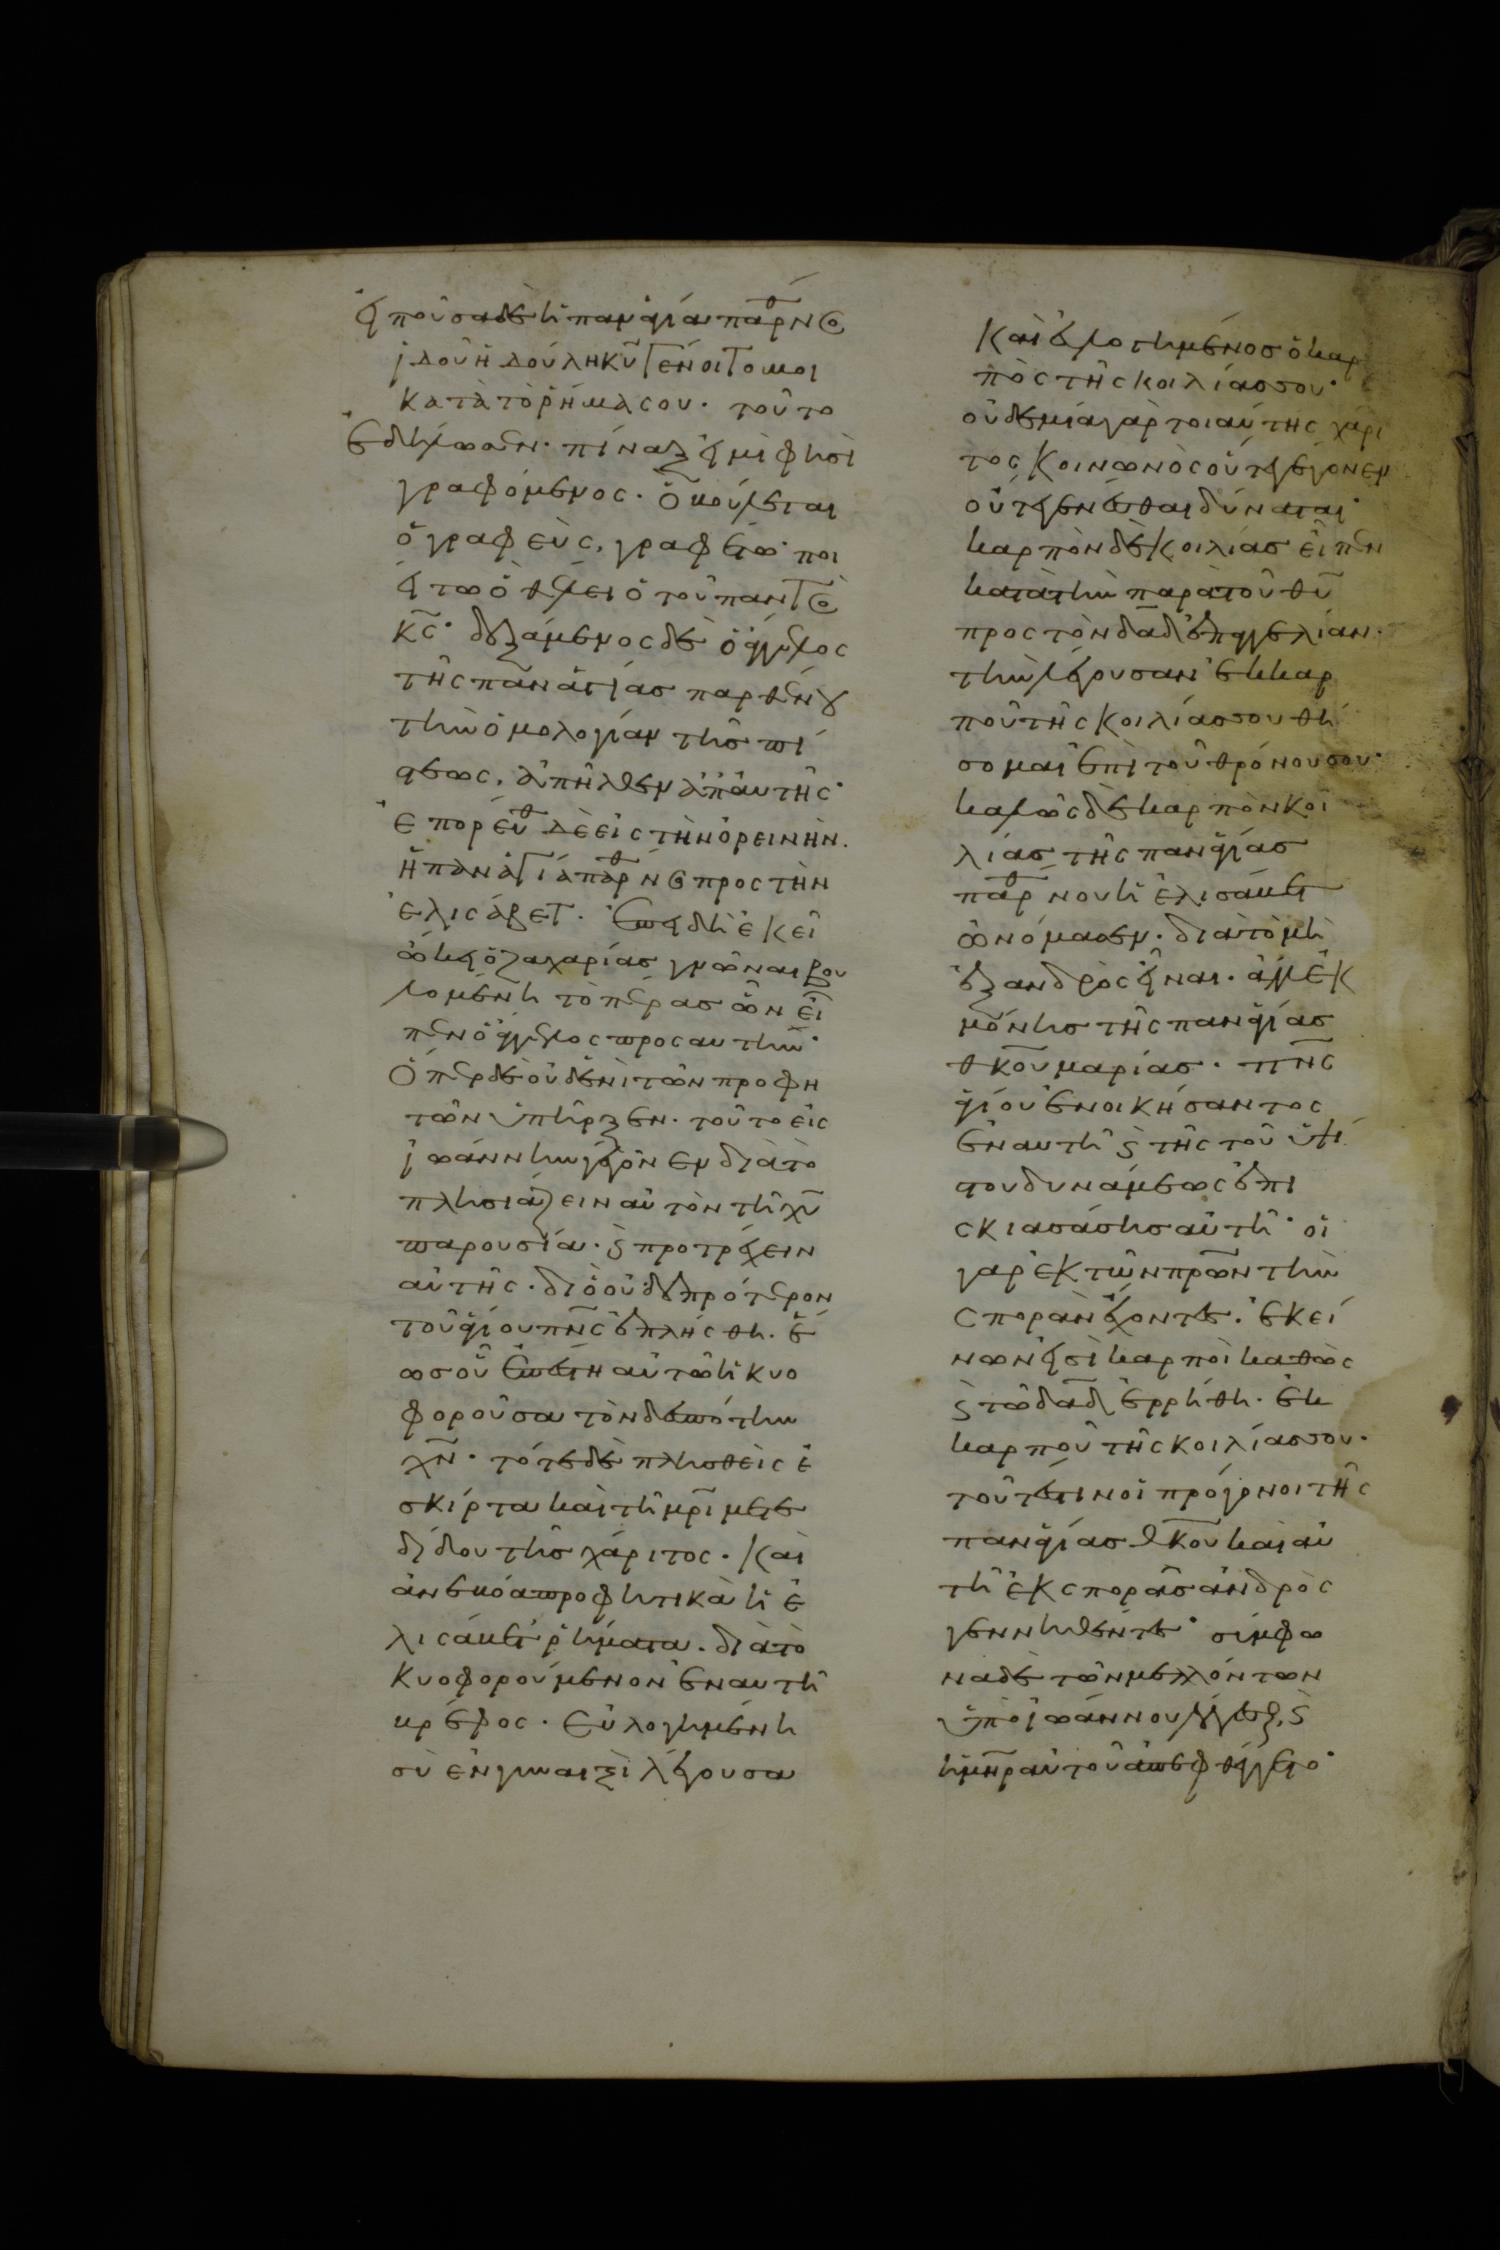 εἰποῦσα δὲ ἡ παναγία παρθν ος
ἰδοῦ ἡ δούλη κυ γένοιτο μοι
κατὰ τὸ ῥῆμά σου· τοῦτο
ἐδήλωσεν· πίναξ εἰμὶ φησὶ
γραφόμενος· ὃ βούλεται
ὁ γραφεὺς, γραφέτω· ποι
είτω ὃ θέλει ὁ τοῦ παντὸς
κς· δεξάμενος δὲ ὁ ἄγγελος
τῆς παναγίας παρθένου
τὴν ὁμολογίαν τῆς πί
στεως, ἀπῆλθεν ἀπ' αὐτῆς·
ἐπορεύθ δὲ εἰς τὴν ὀρεινὴν.
ἡ παναγία παρθν ος προς τὴν
ἐλισάβετ· ἐπειδὴ ἐκεῖ
ὤκει ὁ ζαχαρίας γνῶναι βου
λομένη τὸ πέρας ὧν εἶ
πεν ὁ ἄγγελος προς αυτὴν·
ὅπερ δὲ οὐδενὶ τῶν προφη
τῶν ὑπῆρξεν· τοῦτο εἰς
ἰωάννην γέγονεν διὰ τὸ
πλησιάζειν αὐτὸν τῆ χυ
παρουσία· καὶ προτρέχειν
αὐτῆς· διὸ οὐδὲ πρότερον
τοῦ ἁγίου πνς ἐπλήσθη· ἕ
ως οὗ ἐπέστη αὐτῶ ἡ κυο
φοροῦσα τὸν δεσπότην
χν· τότε δὲ πλησθεὶς ἐ
σκίρτα καὶ τῆ μρὶ μετε
δίδου τῆς χάριτος· καὶ
ἀνεβόα προφητικὰ ἡ ἐ
λισάβετ ῥήματα· διὰ τὸ
κυοφορούμενον ἐν αυτῆ
βρέφος· εὐλογημένη
σὺ ἐν γυναιξὶ λέγουσα
καὶ εὐλογημένος ὁ καρ
πὸς τῆς κοιλίας σου·
οὐδεμία γὰρ τοιαύτης χάρι
τος κοινωνὸς οὔτε γέγονεν
οὔτε γενέσθαι δύναται·
καρπὸν δὲ κοιλίας εἶπεν
κατὰ τὴν παρὰ τοῦ θυ
προς τὸν δαδ ἐπαγγελίαν·
τὴν λέγουσαν ἐκ καρ
ποῦ τῆς κοιλίας σου θή
σομαι ἐπὶ τοῦ θρόνου σου·
καλῶς δὲ καρπὸν κοι
λίας τῆς παναγίας
παρθνου ἡ ἐλισάβετ
ὠνόμασεν· διὰ τὸ μὴ
ἐξ ανδρὸς εἶναι· ἀλλ' ἐκ
μόνης τῆς παναγίας
θκου μαρίας· πνς
ἁγίου ἐνοικήσαντος
ἐν αυτῆ καὶ τῆς τοῦ ὑψί
στου δυνάμεως ἐπι
σκιασάσης αὐτῆ· οἱ
γαρ ἐκ τῶν πρων τὴν
σποραν ἔχοντες· ἐκεί
νων εἰσὶ καρποὶ καθὼς
καὶ τῶ δαδ ἐρρήθη· ἐκ
καρποῦ τῆς κοιλίας σου·
τοῦτέστιν οἱ πρόγονοι τῆς
παναγίας θκου καὶ αὐ
τὴ ἐκ σπορᾶς ἀνδρὸς
γεννηθέντες· σύμφω
να δὲ τῶν μελλόντων
ὑπὸ ἰωάννου λέγεσθ, καὶ
ἡ μηρ αὐτοῦ ἀπεφθέγγετο·